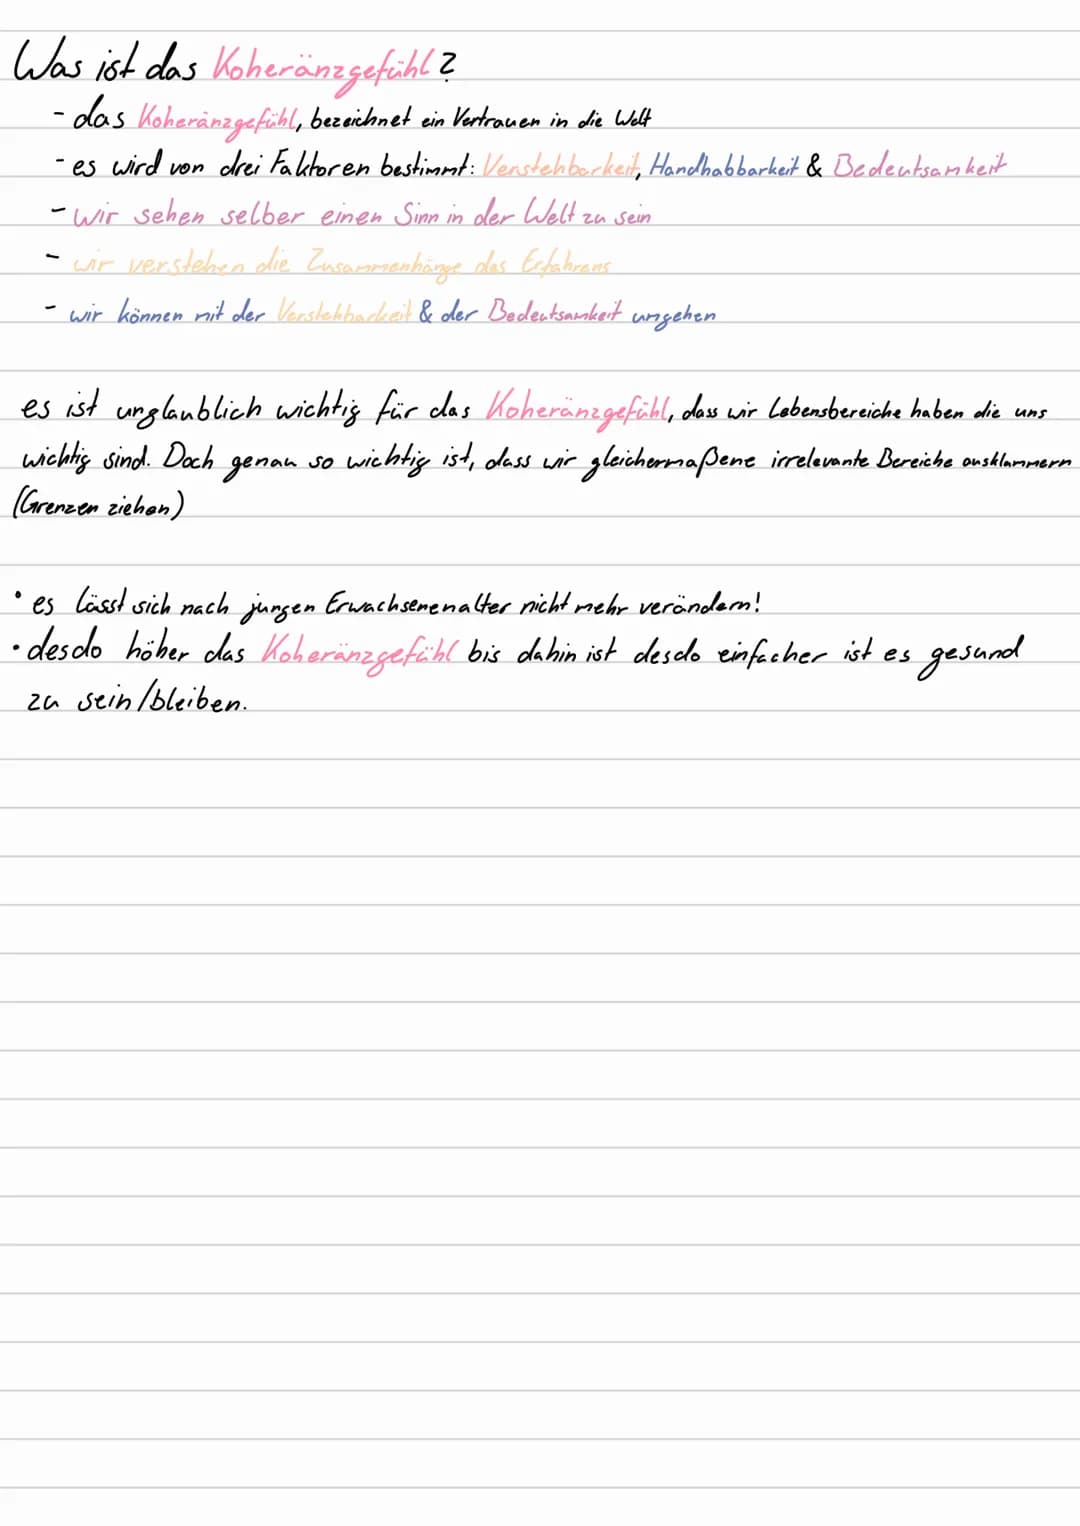 Was ist das Koheränzgefühl?
- das Koheränzgefühl, bezeichnet ein Vertrauen in die Welt
- es wird von drei Faktoren bestimmt: Verstehbarkeit, Handhabbarkeit & Bedeutsamkeit
- wir sehen selber einen Sinn in der Welt zu sein
- wir verstehen die Zusammenhänge des Erfahrens
- wir können mit der Verstehbarkeit & der Bedeutsamkeit umgehen
es ist unglaublich wichtig für das Koheränzgefühl, dass wir Lebensbereiche haben die uns
wichtig sind. Doch genau so wichtig ist, dass wir gleichermaßene irrelevante Bereiche ausklammern
(Grenzen ziehen)
• es lässt sich nach jungen Erwachsenenalter nicht mehr verändern!
• desdo höher das Koheränzgefühl bis dahin ist desdo einfacher ist es gesund
zu sein/bleiben.